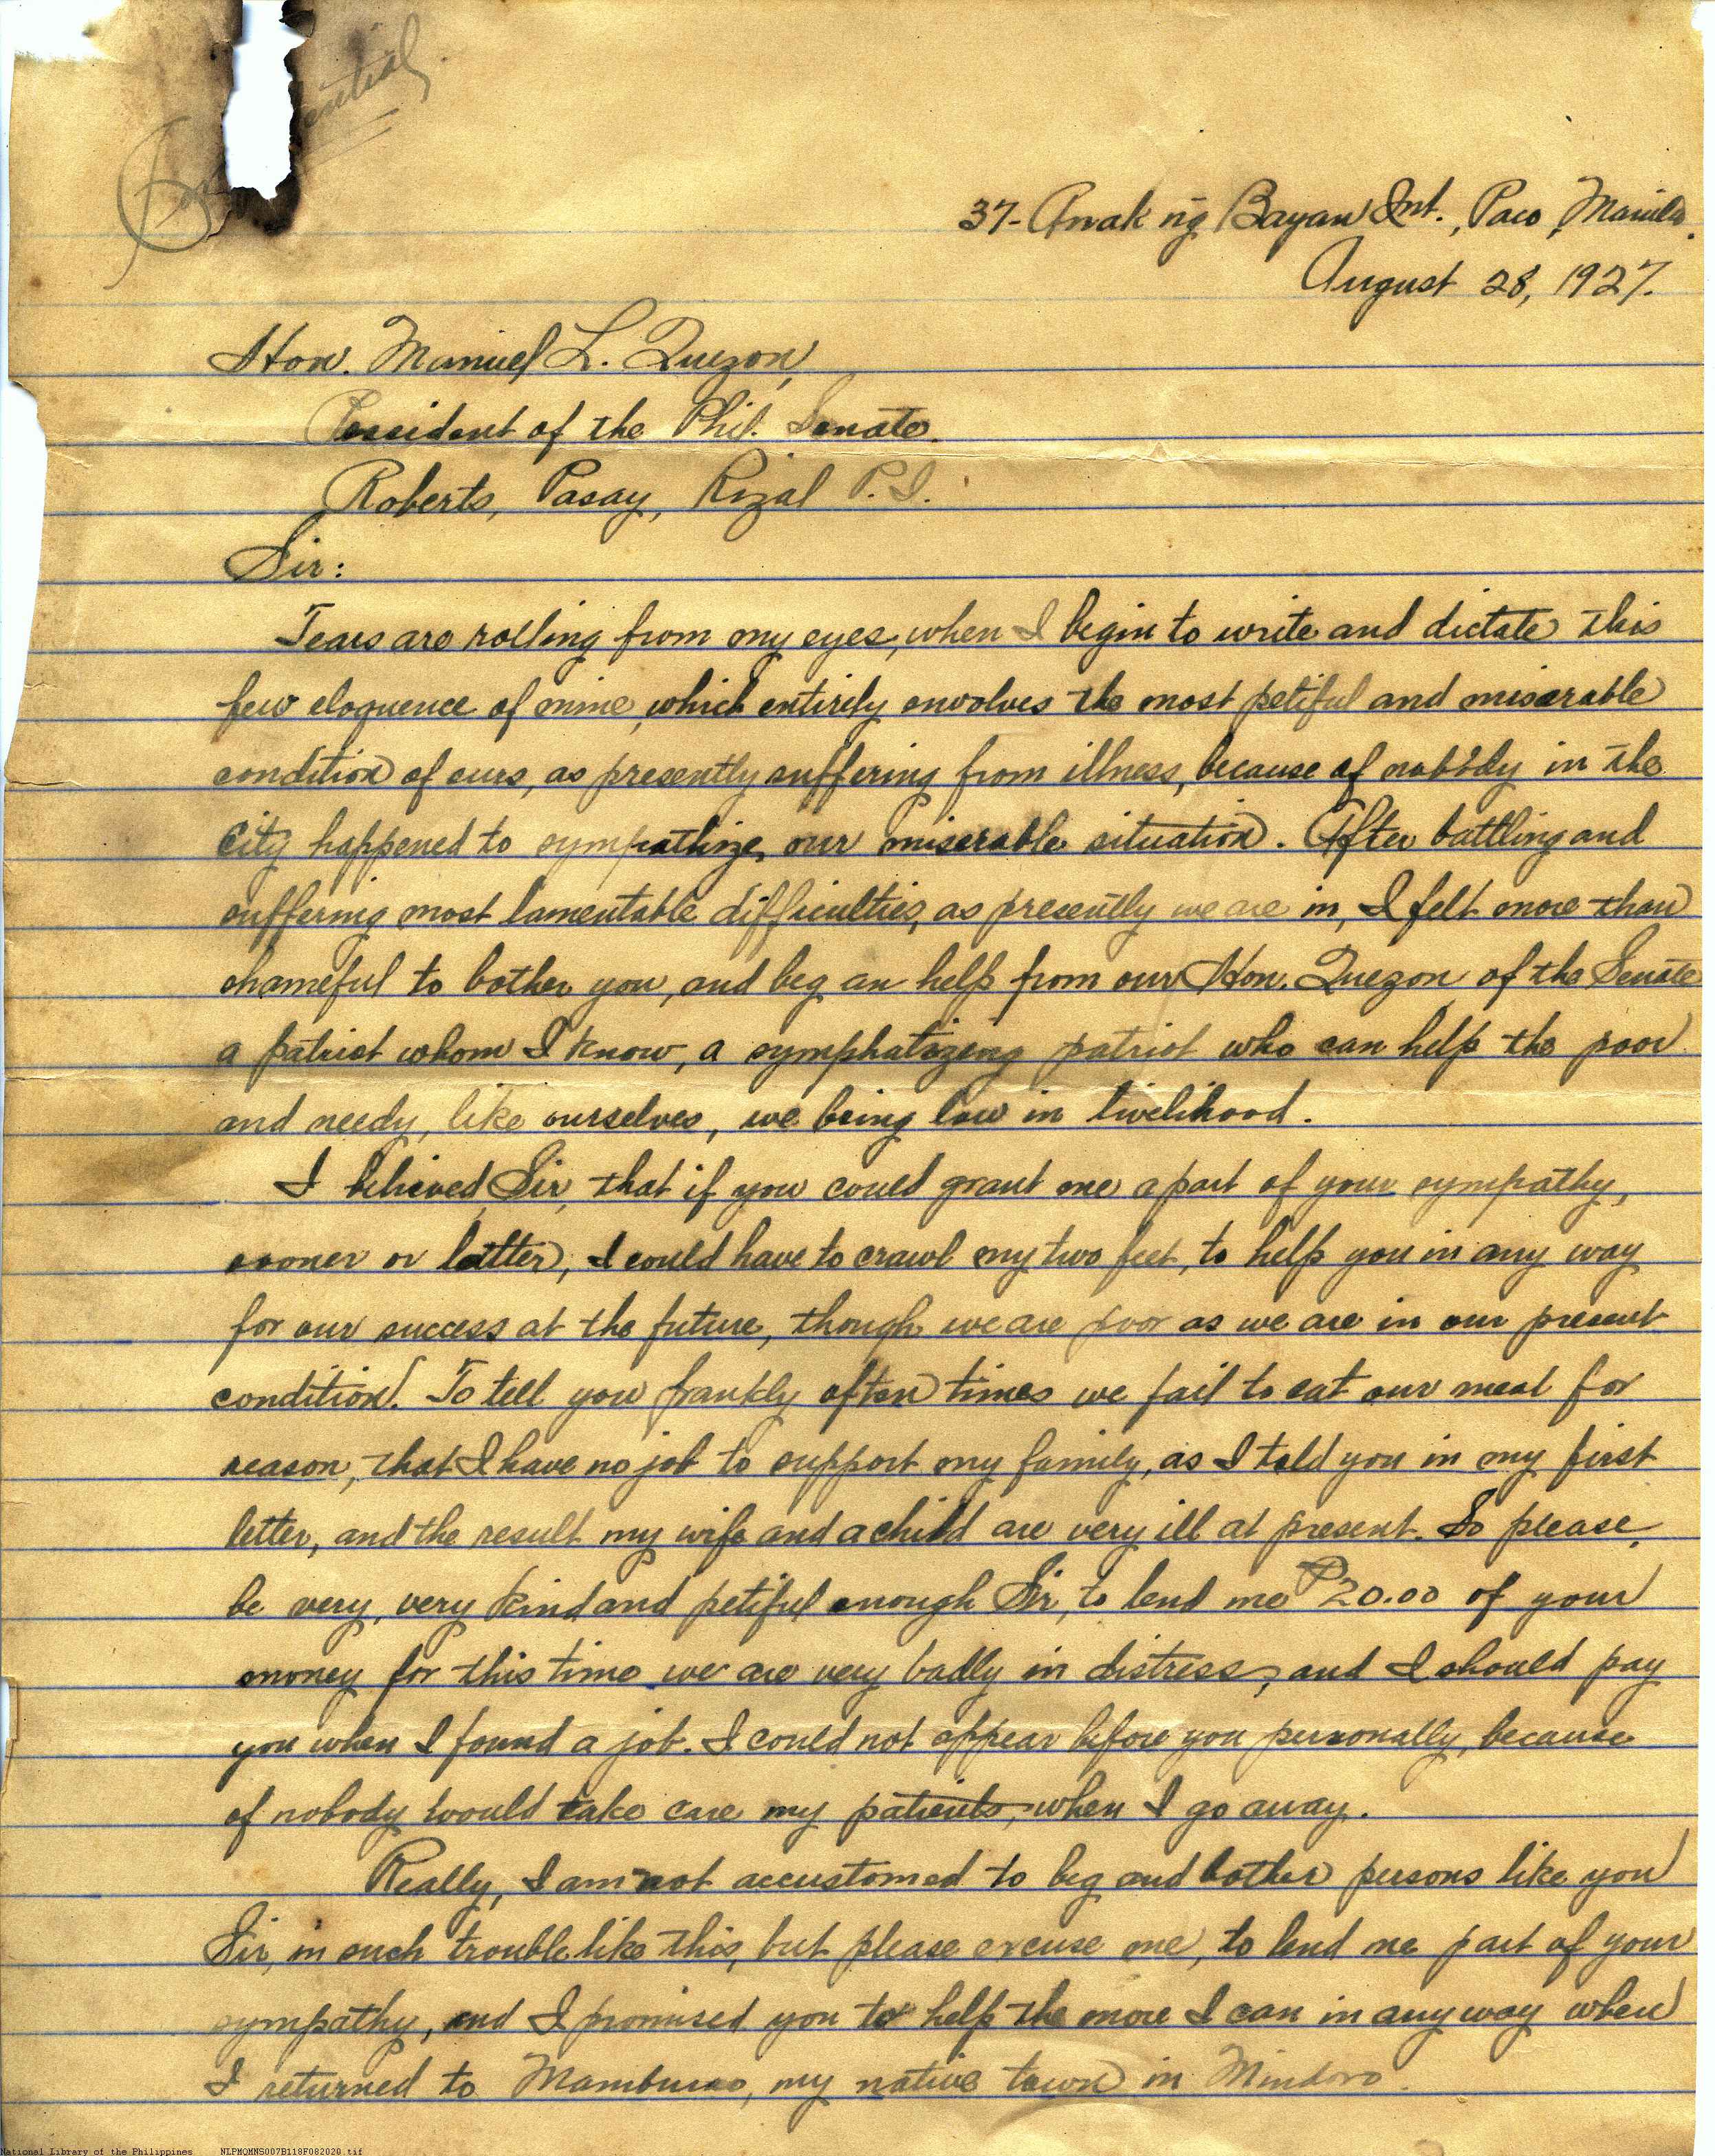 37- Anak ng Bayan Int., Paco, Manila.
August 28, 1927.
Hon. Manuel L. Quezon,
President of the Phil. Senate.
Roberts, Pasay, Rizal P.I.
Sir:
Tears are rolling from my eyes, when I begin to write and dictate this
few eloquence of mine, which entirely envolves the most petiful and miserable
condition of ours, as presently suffering from illness, because of nobody in the
City happened to sympathize, our miserable situation. After battling and
suffering most lamentable difficulties, as presently we are in, I felt more than
shameful to bother you, and beg an help from our Hon. Quezon of the Senate
a patriot whom I know, a symphatizing patriot who can help the poor
and needy, like ourselves, we being low in livelihood.
I believed, Sir, that if you could grant me a part of your sympathy,
sooner or latter, I could have to crawl my two feet, to help you in any way
for our success at the future, though we are poor as we are in our present
condition. To tell you frankly often times we fail to eat our meal for
reason, that I have no job to support my family, as I told you in my first
letter, and the result my wife and a child are very ill at present. So please
be very, very kind and petiful enough Sir, to lend me ₱20.00 of your
money for this time we are very badly in distress, and I should pay
you when I found a job. I could not appear before you personally, because
of nobody would take care my patients, when I go away.
Really, I am not accustomed to beg and bother persons like you
Sir, in such trouble like this, but please excuse me, to lend me part of your
sympathy, and I promised you to help the more I can in any way when
I returned to Mamburao, my native town in Mindoro.
National Library of the Philippines NLPMQMNS007B118F082020.tif